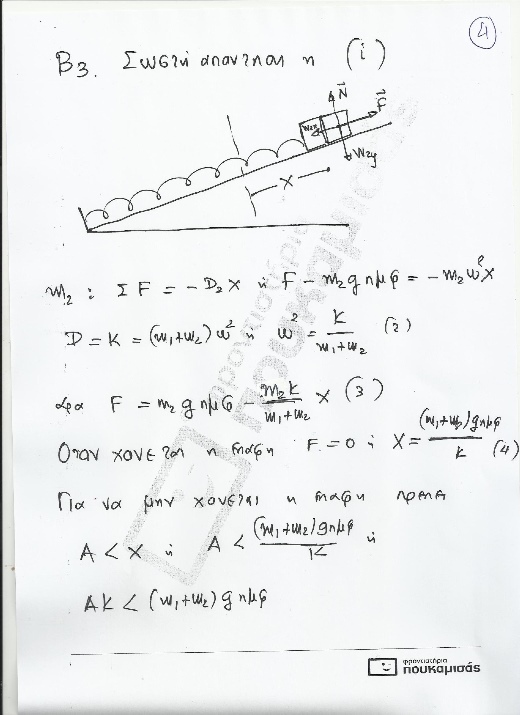 4
Β3. Σωστή απάντηση η (i)
N F
W2x
W2y
x
m₂ : ΣF = -D₂x ή F - m₂gημφ = -m₂ω²x
D = K = (m₁+m₂)ω² ή ω² = K/(m₁+m₂) (2)
άρα F = m₂gημφ - m₂k/(m₁+m₂) x (3)
Όταν χάνεται η επαφή F=0 ή X = (m₁+m₂)gημφ/k (4)
Για να μην χάνεται η επαφή πρέπει
A < X ή A < (m₁+m₂)gημφ/K ή
AK < (m₁+m₂)gημφ
φροντιστήρια
πουκαμισάς
φροντιστήρια
πουκαμισάς